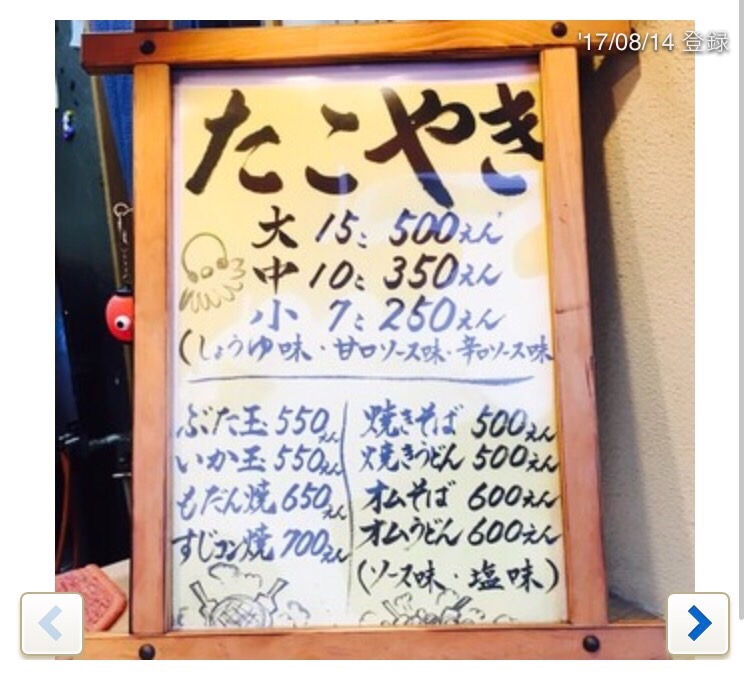 '17/08/14 登録
たこやき
大 15こ 500えん
中 10こ 350えん
小 7こ 250えん
(しょうゆ味・甘口ソース味・辛口ソース味
ぶた玉 550えん
いか玉 550えん
もだん焼 650えん
すじコン焼 700えん
焼きそば 500えん
焼きうどん 500えん
オムそば 600えん
オムうどん 600えん
(ソース味・塩味)